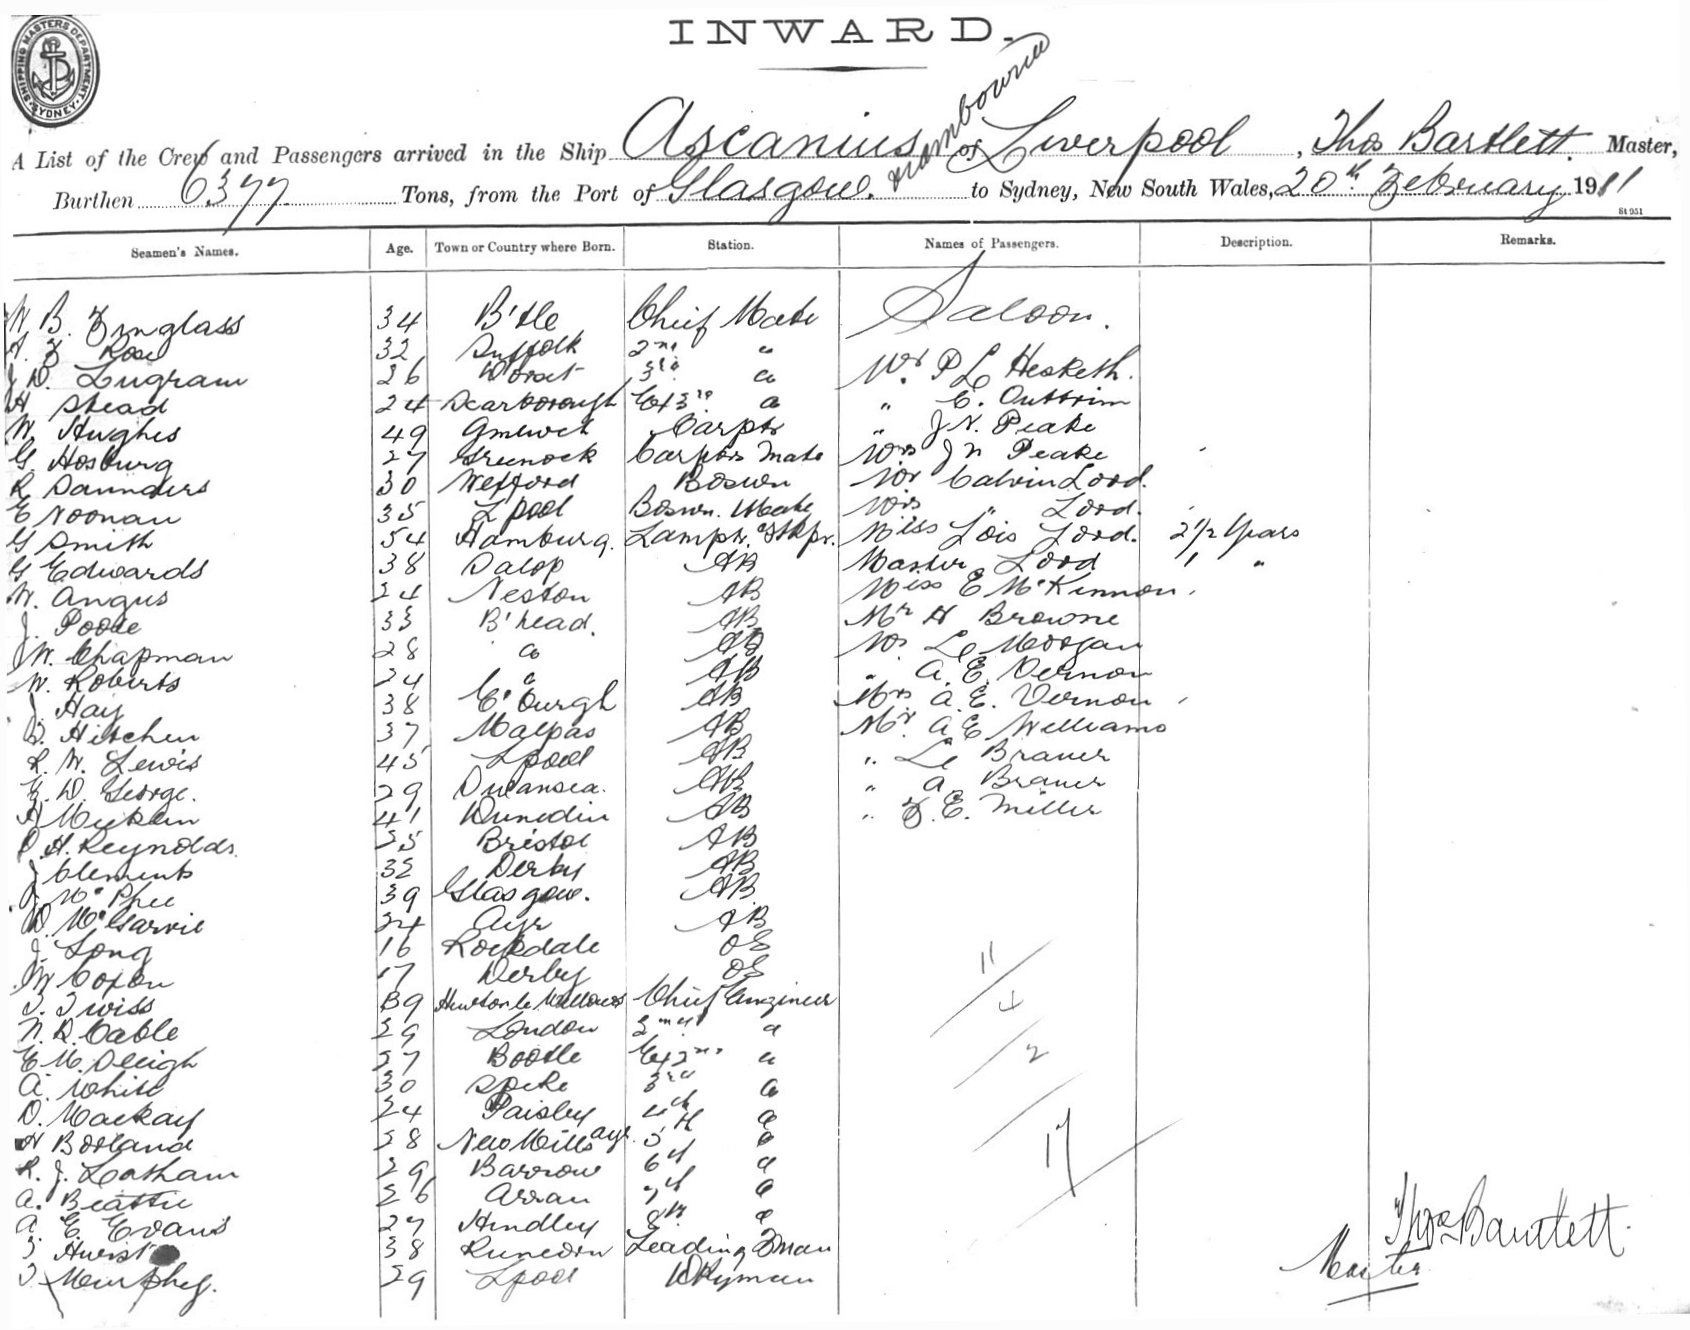 SHIPPING MASTERS DEPARTMENT. SYDNEY
INWARD.
A List of the Crew and Passengers arrived in the Ship Ascanius of Liverpool, Thos Bartlett. Master,
Burthen 6377 Tons, from the Port of Glasgow. to Sydney, New South Wales, 20th February 1911
St 951
Seamen's Names. Age. Town or Country where Born. Station. Names of Passengers. Description. Remarks.
Saloon.
W B. 34 B'tle Chief Mate
Rose 32 Suffolk 2nd "
J D. Lugram 26 Dorset 3rd " Mr P L Hesketh.
H Stead 24 Scarborough Ex 3rd " " E. Outtrim
W Hughes 49 Amlwch Carptr " J N. Peake
G Hosburg 27 Greenock Carptrs Mate Mrs J N Peake
R Saunders 30 Wexford Boswn Mr Calvin Lord.
E Noonan 35 Lpool Boswn. Mate Mrs " Lord.
G Smith 54 Hamburg. Lamptr. & Stkpr. Miss Lois Lord. 2 1/2 Years
G Edwards 38 Salop AB Master Lord 1 "
W. Angus 24 Neston AB Miss E McKinnon
J. Poole 33 B'head. AB Mr H Browne
W. Chapman 28 " AB Mr L Morgan
W. Roberts 24 " AB " A. E. Vernon
J Hay 38 E'burgh AB Mrs A. E. Vernon
Hitchen 37 Malpas AB Mr. A E Williams
R. W. Lewis 45 Lpool AB " L Brauer
D. George. 29 Swansea. AB " A Brauer
A 41 Dunedin AB " F. E. Miller
H. Reynolds. 25 Bristol AB
J Clements 32 Derby AB
McPhee 39 Glasgow. AB
D. McGarvie 24 Ayr AB
J Long 16 Rockdale OS 11
W Coxon 17 Derby OS
T. Twiss 39 Newton le Willows Chief Engineer 4
N. D. Cable 29 London 2nd "
E M. Sleigh 27 Bootle Ex 2nd " 2
A. White 30 Speke 3rd "
D. Mackay 24 Paisley 4th "
H Borland 28 New Mills Ayr. 5th " 17
R. J. Latham 29 Barrow 6th "
A. Beattie 26 Arran 7th "
A. E. Evans 27 Hindley 8th "
T Hurst 38 Runcorn Leading Fman
T Murphy. 29 Lpool Dkyman
Thos Bartlett.
Master